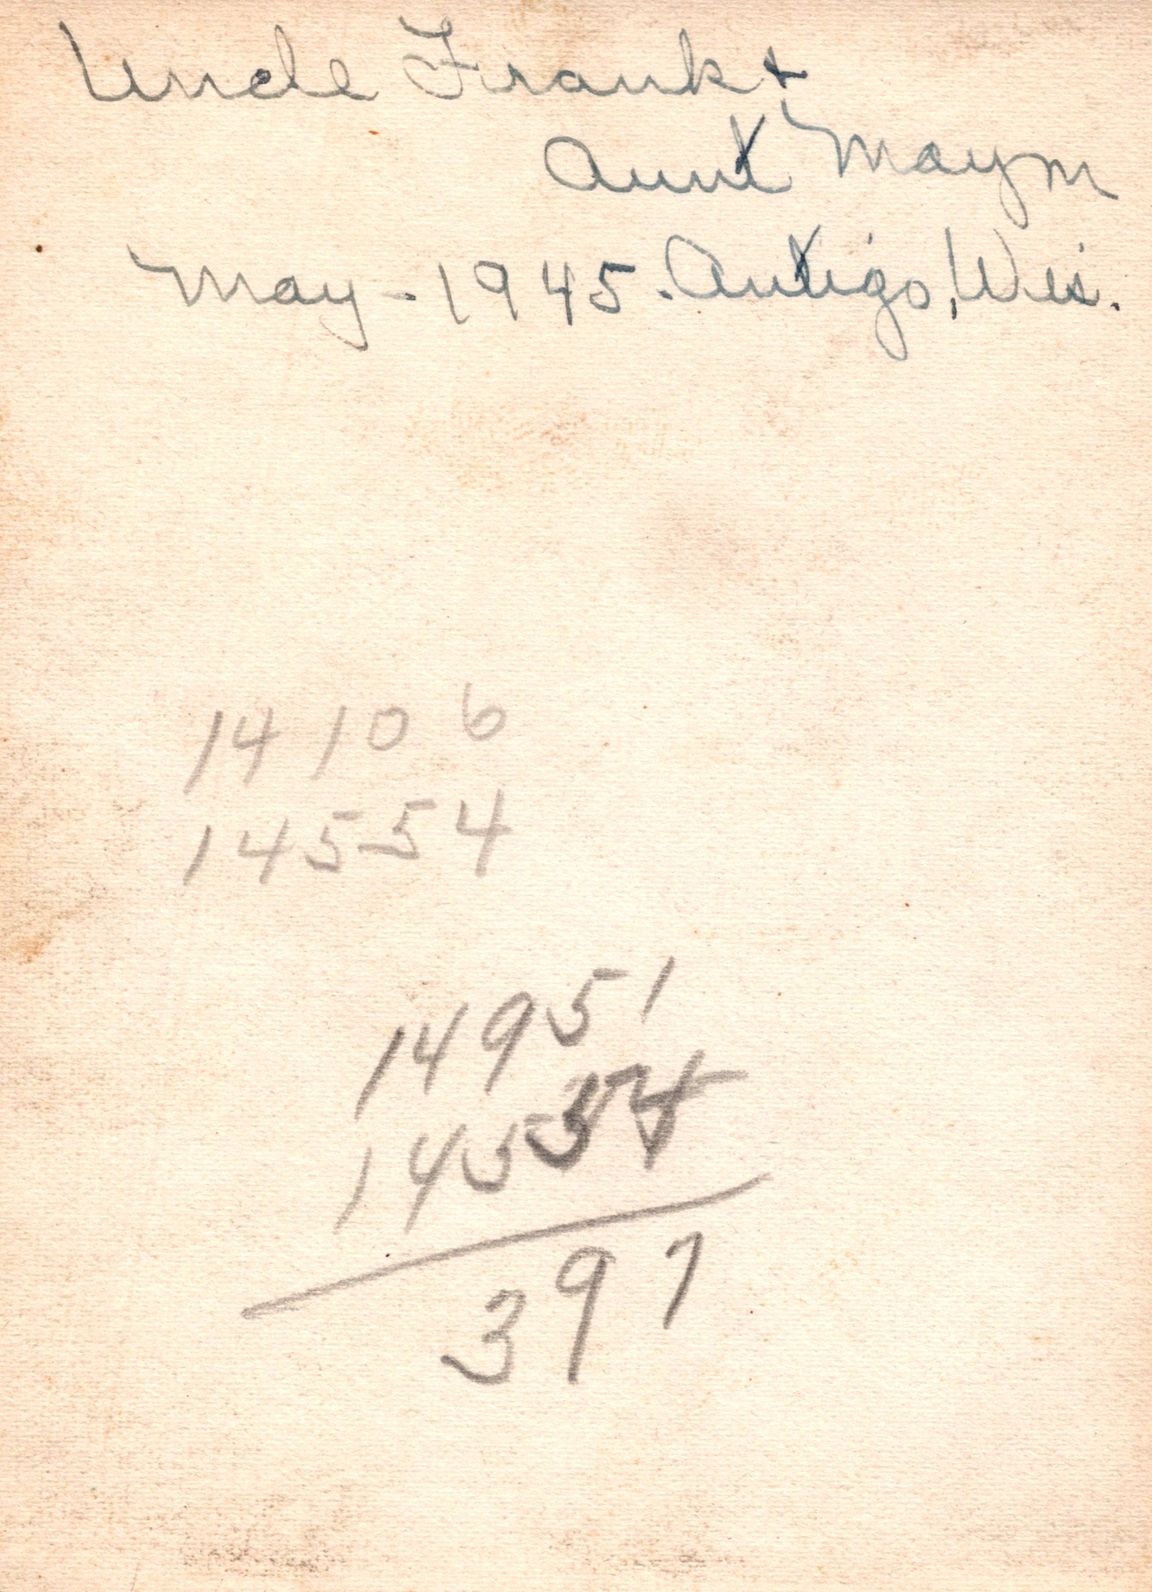 Uncle Frank +
Aunt Maym
May - 1945. Antigo, Wis.
14106
14554
14951
14554
397